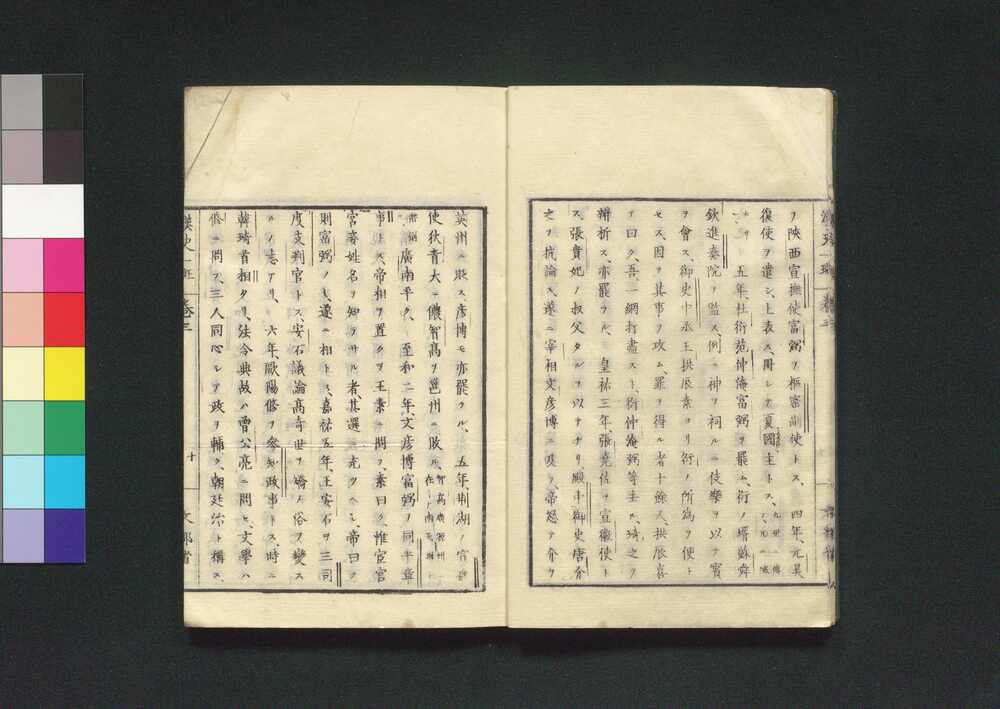 ヲ陝西宣撫使富弼ヲ樞密副使トス、四年、元昊
復使ヲ遣シ、上表ス、冊シテ夏國主トス、
五年、杜衍范仲淹富弼ヲ罷ム、衍ノ壻蘇舜
欽進奏院ヲ監ス、例ニ神ヲ祠ルニ伎樂ヲ以テ賓
ヲ會ス、御史中丞王拱辰素ヨリ衍ノ所爲ヲ便ト
セス、因テ其事ヲ攻ム、罪ヲ得ル者十餘人、拱辰喜
テ曰ク、吾一網打盡スト、衍仲淹弼等去ル、琦之ヲ
辨析ス、亦罷ラル、皇祐三年、張堯佐ヲ宣徽使ト
ス、張貴妃ノ叔父タルヲ以テナリ、殿中御史唐介
之ヲ抗論ス、遂ニ宰相文彦博ニ及フ、帝怒テ介ヲ
英州ニ貶ス、彦博モ亦罷ラル、五年、荆湖ノ宣
使狄青大ニ儂智高ヲ邕州ニ敗ル、
廣南平ク、至和二年、文彦博富弼ヲ同平章
事トス、帝相ヲ置クヲ王素ニ問フ、素曰ク、惟宦官
宮妾姓名ヲ知ラサル者、其選ニ充ツヘシ、帝曰ク
則富弼ノミ、遂ニ相トス、嘉祐五年、王安石ヲ三司
度支判官トス、安石議論高奇世ヲ矯メ俗ヲ變ス
ルノ志アリ、六年、歐陽修ヲ參知政事トス、時ニ
韓琦首相タリ、法令典故ハ曾公亮ニ問ヒ、文學ハ
修ニ問フ、三人同心シテ政ヲ輔ク、朝廷治ト稱ス、
漢史一班 卷三
十
文部省